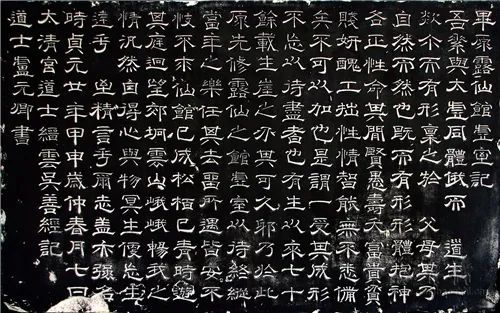 畢原露仙館虛室記
吾嘗與太虛同體俄而 道生一
欻尒而有形稟之於 父母其乃
自然而然也既而有形形體抱神
各正性命其間賢愚壽夭富貴貧
賤妍醜工拙性情智能無不悉備
矣不可以加也是謂一受其成形
不忘以待盡者也有生以來七十
餘載生崖之分其可久耶乃於此
原先修露仙之館虛室以待終縱
當年之樂任其去留所遇皆安不
忮不求仙館已成松栢已青時遊
其庭迴望郊坰雲山峨峨暢我之
情況然自得心與物冥生便忘生
達乎 至精言乎爾志盖亦強名
時貞元廿年甲申歲仲春月七日
太清宮道士縉雲吳善經記
道士盧元卿書